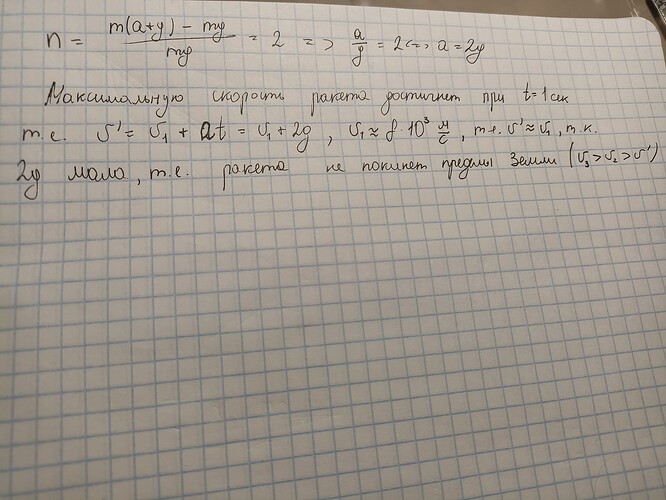 n = (m(a+g) - mg)/mg = 2 => a/g = 2 <=> a = 2g
Максимальную скорость ракета достигнет при t=1 сек
т.е. υ' = υ₁ + at = υ₁ + 2g , υ₁ ≈ 8·10³ м/с , т.е. υ' ≈ υ₁, т.к.
2g мала, т.е. ракета не покинет пределы Земли (υ₃ > υ₂ > υ')